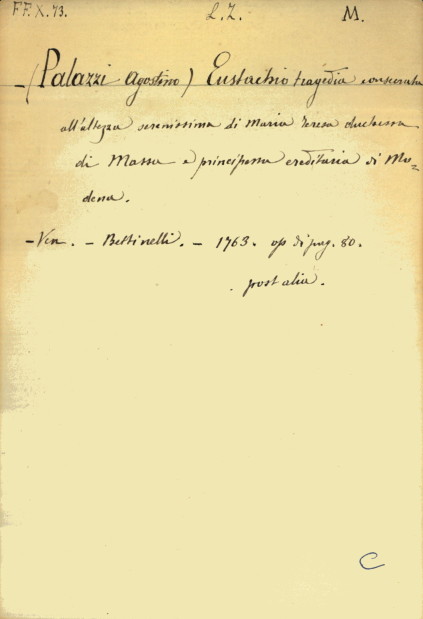 FF. X. 73. L. Z. M.
- (Palazzi Agostino) Eustachio tragedia consecrata
all'altezza serenissima di Maria Teresa duchessa
di Massa e principessa ereditaria di Mo=
dena.
- Ven. - Bettinelli. - 1763. op di pag. 80.
. post alia.
C